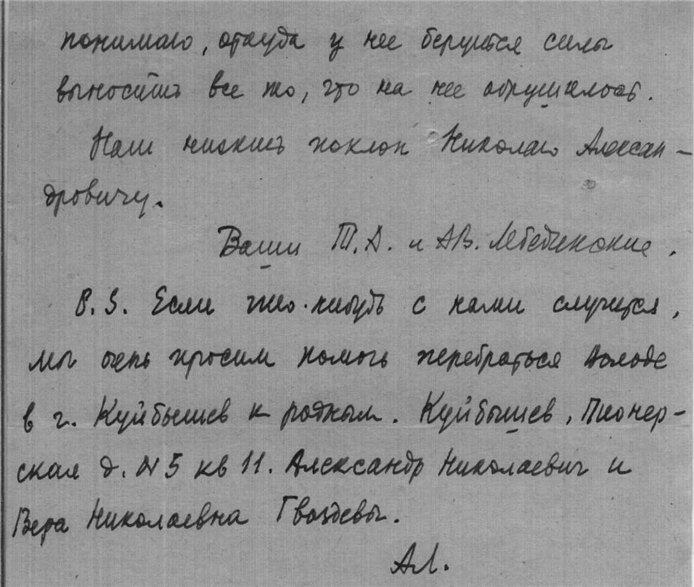 понимаю, откуда у нее берутся силы
выносить все то, что на нее обрушилось.
Наш низкий поклон Николаю Алексан-
дровичу.
Ваши Т.А. и А.В. Лебединские.
P.S. Если что-нибудь с нами случится,
мы очень просим помочь перебраться Володе
в г. Куйбышев к родным. Куйбышев, Пионер-
ская д. №5 кв 11. Александр Николаевич и
Вера Николаевна Гвоздевы.
АЛ.